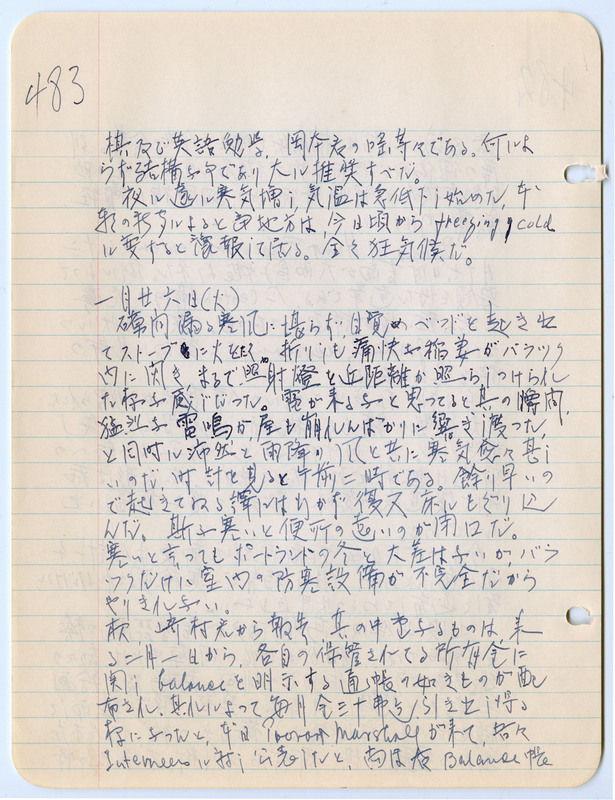 483
棋及び英語勉学、岡本君の唾等々である。何によ
らず結構な事であり大に推奨すべきだ。
夜に遂に寒気増し気温は急低下し始めた、本
報の新聞によると当地方は、今日頃から freezing cold
に変ずると予報して居る。全く狂気候だ。
一月廿六日(火)
隙間漏る寒風に堪らず、目覚めベッドを起き出
てストーブに火を焚く。折りしも痛快な稲妻がバラック
内に閃き、まるで照射燈を近距離から照らしつけられ
た様な感じだった。雷が来るなと思ってると其の瞬間、
猛烈な雷鳴が屋も崩れんばかりに響き渡った、
と同時に沛然と雨降り風と共に寒気愈々甚し
いのだ、時計を見ると午前二時である。余り早いの
で起きてゐる訳にはゆかず復又床にもぐり込
んだ。斯う寒いと便所の遠いのが閉口だ。
寒いと言ってもポートランドの冬と大差はないが、バラ
ックだけに室内の防寒設備が不完全だから
やりきれない。
村君から報告、其の中重なるものは、来
る二月一日から、各自の保管されてる所有金に
関し balance を明示する通帳の如きものが配
布され、其れによって毎月金三十弗を引き出し得る
様になったと、本日 Provost Marshall が来て、各々
Internees に対し公表したと、尚ほ各 Balance 帳